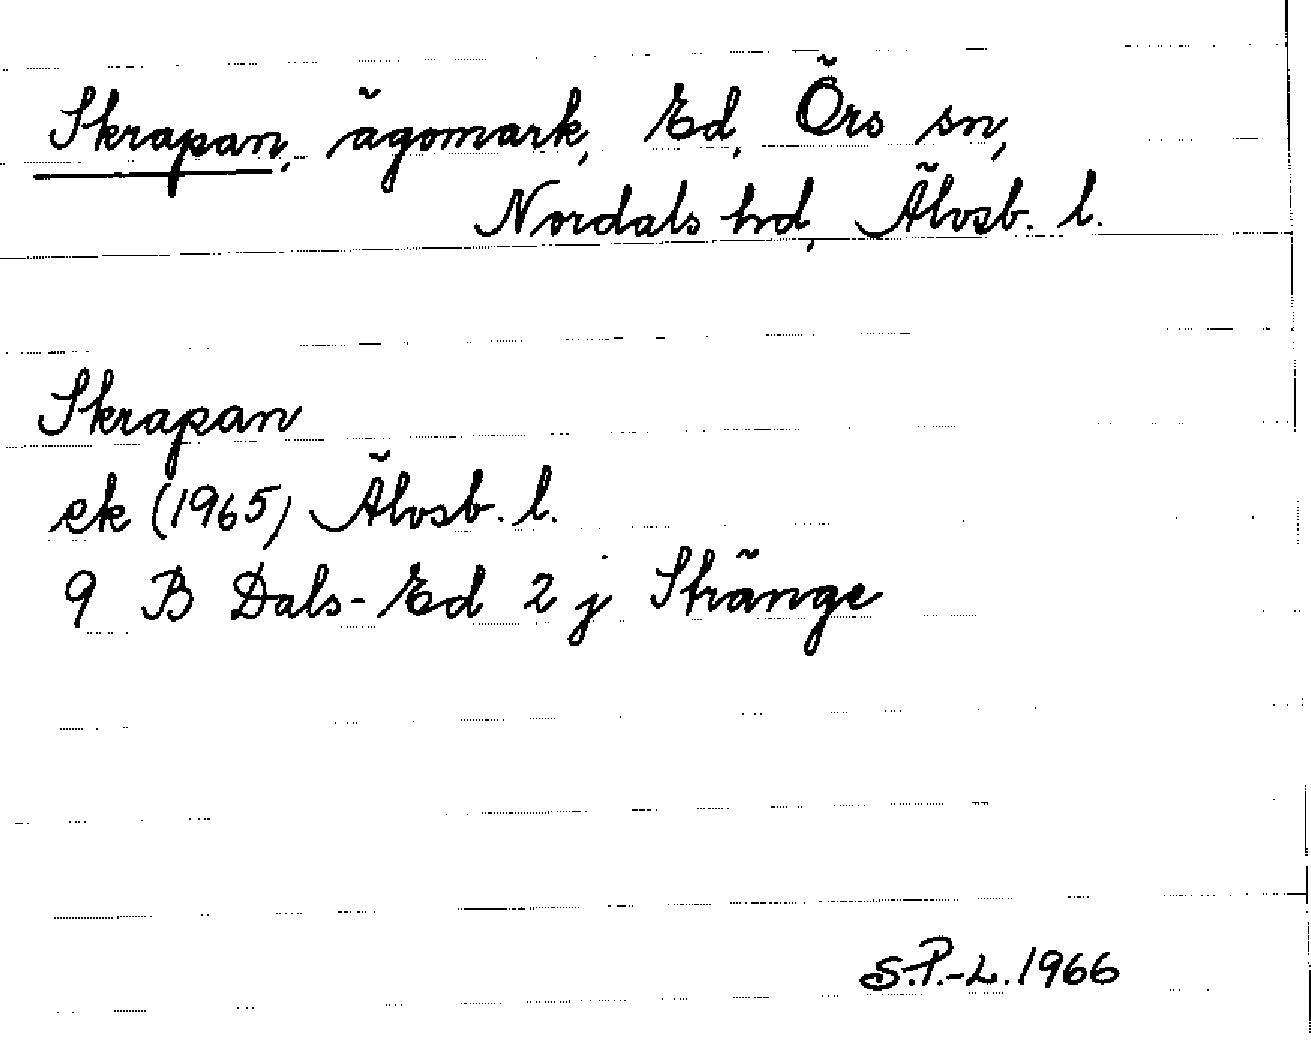 Skrapan, ägomark, Ed, Örs sn,
Nordals hd, Älvsb. l.
Skrapan
ek (1965) Älvsb. l.
9 B Dals-Ed 2 j Stränge
S.P.-L. 1966